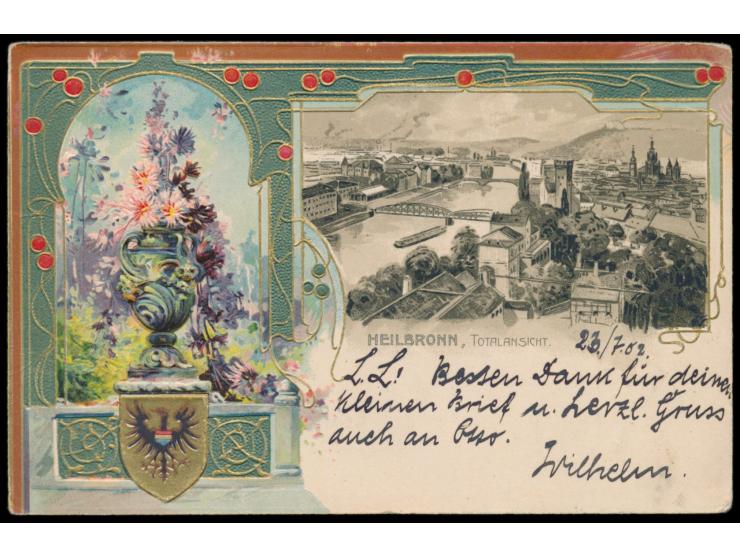 HEILBRONN, TOTALANSICHT.
23./7.02.
L. L! Besten Dank für deinen
kleinen Brief u. herzl. Gruss
auch an Otto.
Wilhelm.